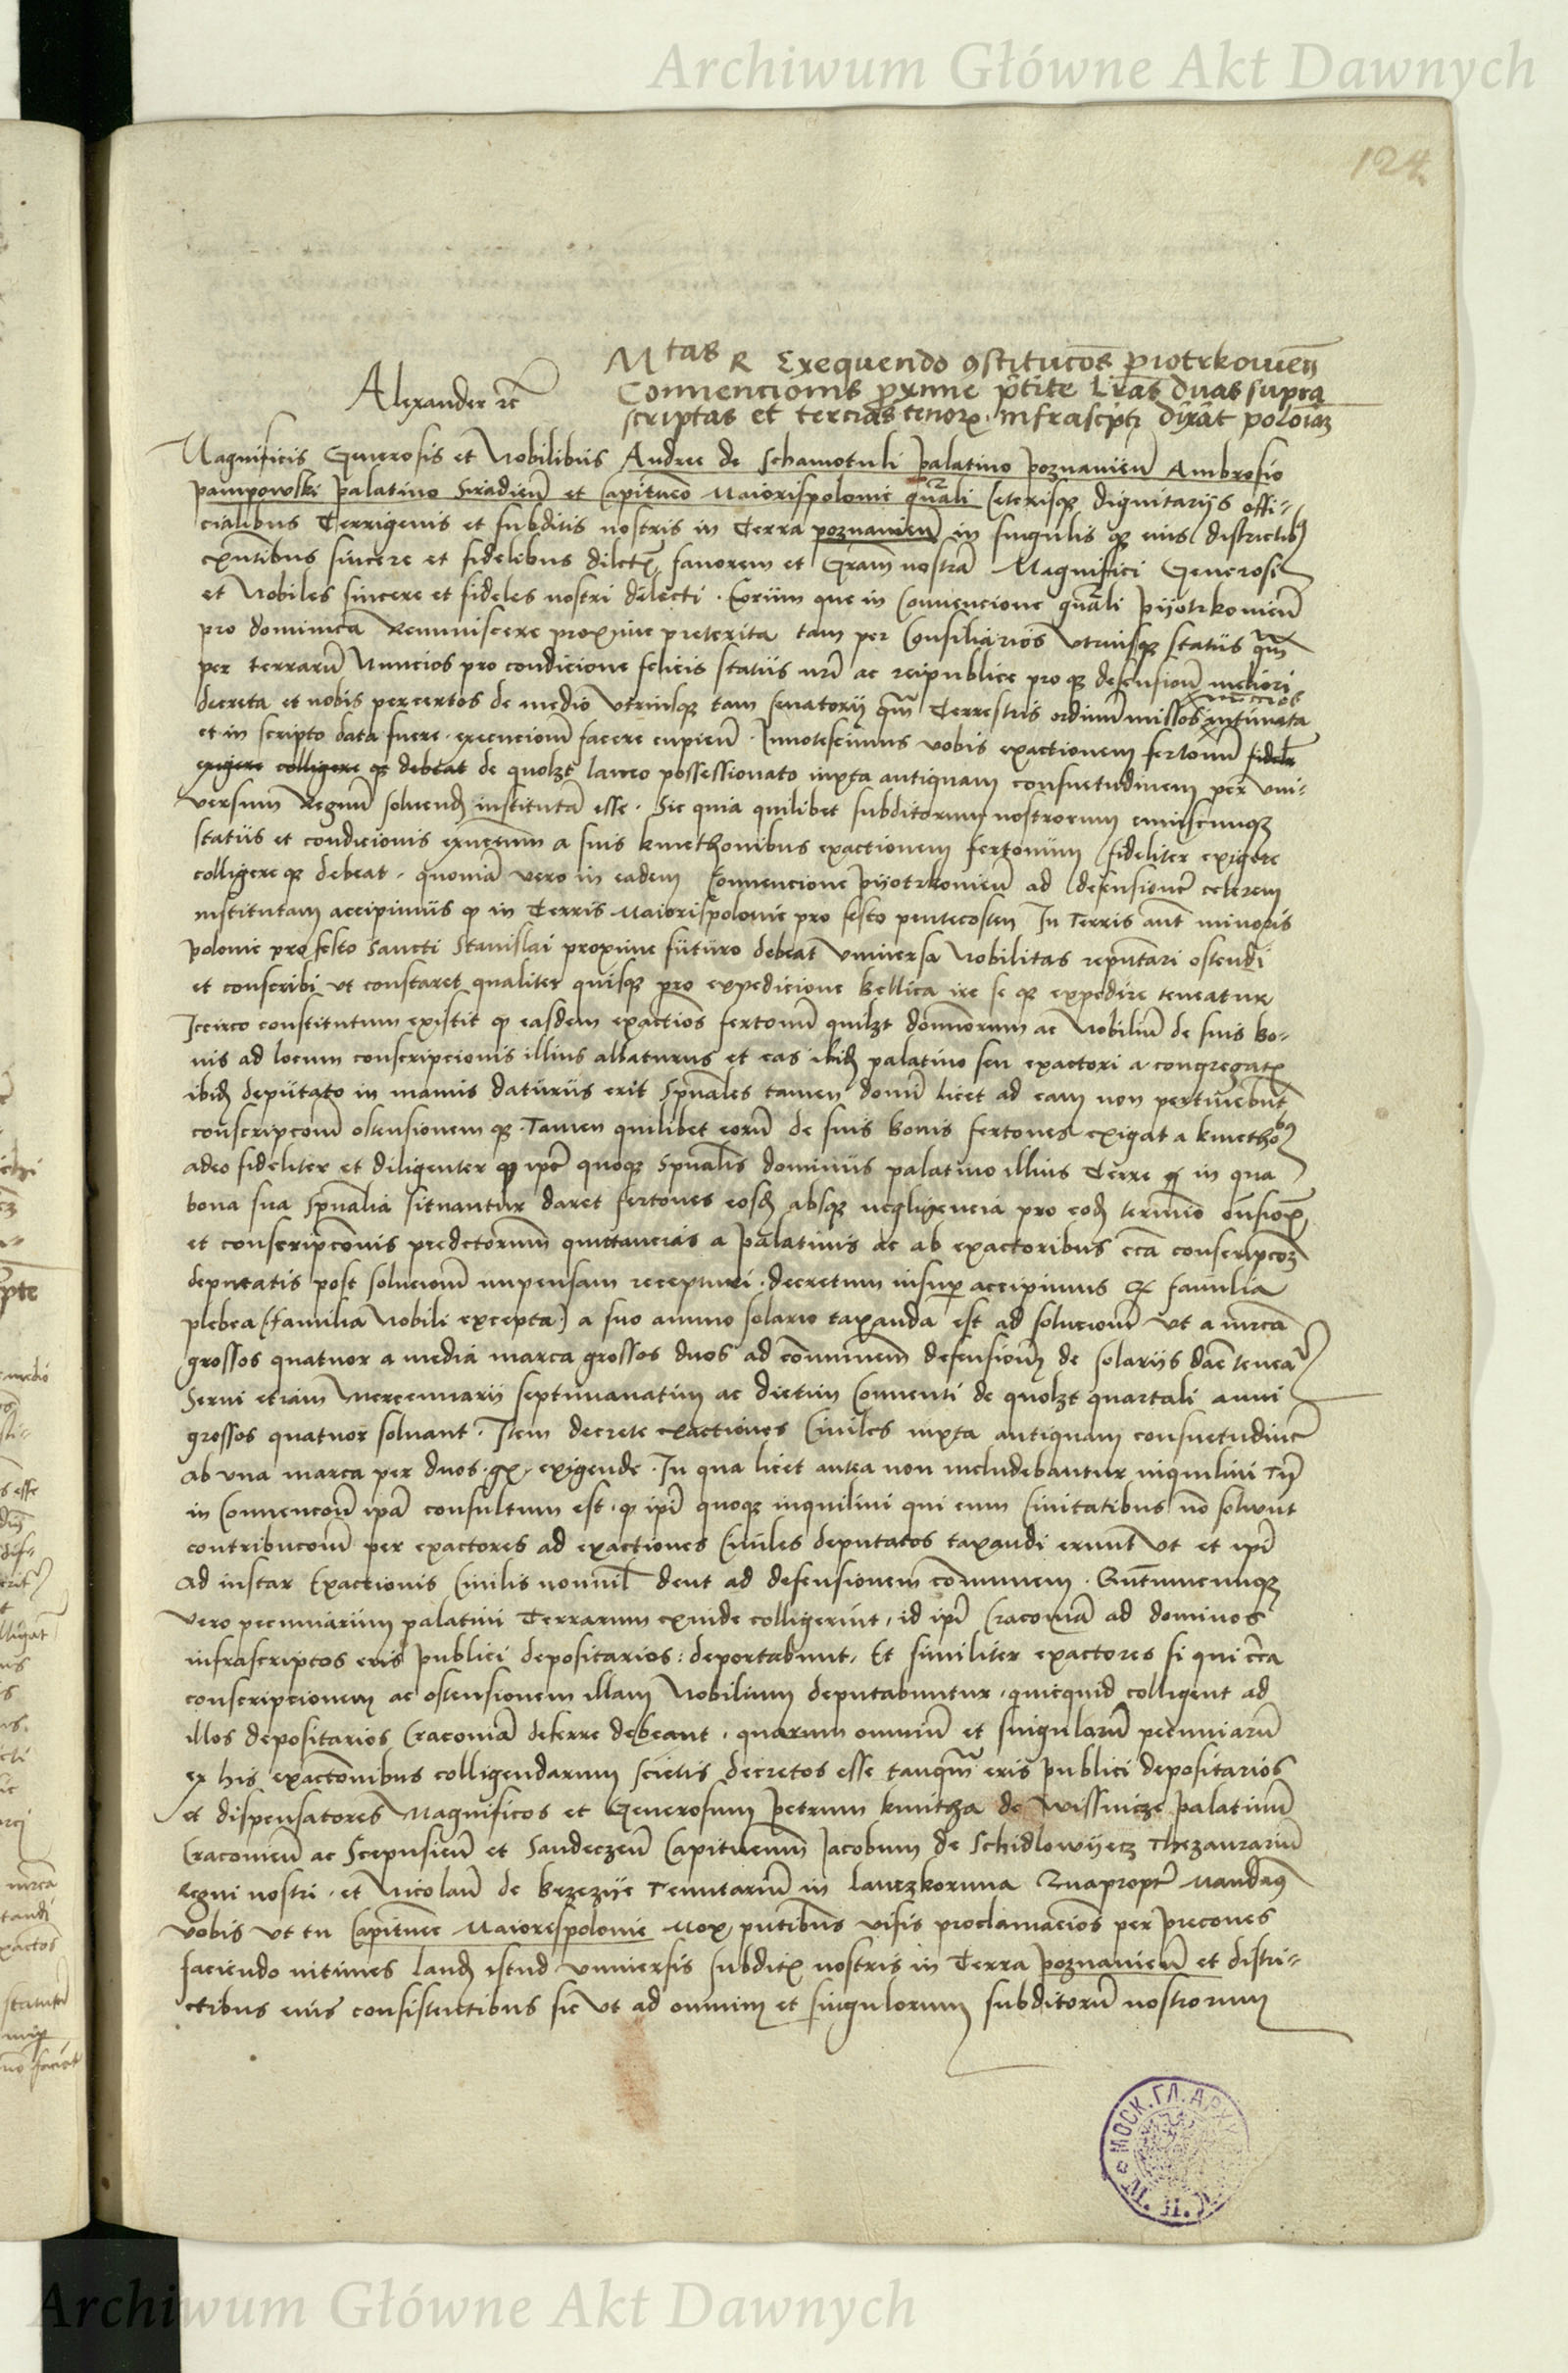 Archiwum Główne Akt Dawnych
124
Mtas R Exequendo ɔstitucōs piotrkowien̄
Conuencionis pxime p̄tite lr̄as duas supra
scriptas et tercias tenoris infrascpti dixit poloniā
Alexander rc̄
Magnificis Generosis et Nobilibus Andree de Schamotuli palatino poznanien̄ Ambrosio
pampowski palatino Siradien̄ et Capitaneo Maiorispolonie gn̄ali Ceterisque dignitarijs offi-
cialibus Terrigenis et subditis nostris in Terra poznanien̄ in singulis que eius districtib
exn̄tibus sincere et fidelibus dilectis fauorem et Gram̄ nostrā Magnifici Generosi
et Nobiles sincere et fideles nostri dilecti. Eorum que in Conuencione gn̄ali pijotrkowien̄
pro dominica Reminiscere proxime preterita tam per Consiliarios vtriusque status qm̄
per terrarū Nuncios pro condicione felicis status nr̄i ac reipublice pro que defensione meliori
decreta et nobis per certos de medio vtriusque tam senatorij qm̄ Terrestris ordinum missos nuncios intimata
et in scripto data fuere. execucionem facere cupien̄. Innotescimus vobis exactionem fertonū fideli
exigere colligere que debeat de quolzt laneo possessionato iuxta antiquam consuetudinem per vni-
versum Regnū soluend institutā esse. Sic quia quilibet subditorum nostrorum cuiuscunque
status et condicionis existeret a suis kmethonibus exactionem fertonum fideliter exigere
colligere que debeat. quoniā vero in eadem Conuencione pijotrkowien̄ ad defensionem celerem
institutam accipimus quod in Terris Maiorispolonie pro festo pentecosten In Terris aut̄ minoris
polonie pro festo Sancti Stanislai proxime futuro debeat vniuersa Nobilitas reputari ostendi
et conscribi vt constaret qualiter quisque pro expedicione bellica ire se que expedire teneatur
Iccirco constitutum existit quod easdem exactiōs fertonū quilzt dominorum ac Nobiliū de suis bo-
nis ad locum conscripcionis illius allaturus et eas ibid palatino seu exactori a congregatis
ibid deputato in manus daturus erit Spūales tamen domī licet ad eam non pertinebunt
conscripcionem ostensionem que. Tamen quilibet eorū de suis bonis fertones exigat a kmethobus
adeo fideliter et diligenter quod ipse quoque Spūalis dominus palatino illius Terre in qua
bona sua Spūalia situantur daret fertones eosd absque negligencia pro eod termino on̄sionis
et conscripcionis predictorum quittancias a palatinis ac ab exactoribus circa conscripcionem
deputatis post solucionem impensam recepturi. decretum insup accipimus quod familia
plebea (familia Nobili excepta) a suo annuo solario taxanda est ad solucionem vt a mrca
grossos quatuor a media marca grossos duos ad communem defensionem de solarijs dare teneatur
Serui etiam Mercennarij septimanatim ac dietim Conuenti de quolzt quartali anni
grossos quatuor soluant. Item decrete exactiones Ciuiles iuxta antiquam consuetudinem
ab vna marca per duos gr. exigende. In qua licet antea non includebantur inquilini Tn̄
in Conuencioni ipa consultum est. quod ipi quoque inquilini qui cum Ciuitatibus nō soluunt
contribucionem per exactores ad exactiones Ciuiles deputatos taxandi erunt vt et ipi
ad instar Exactionis Ciuilis nonnil dent ad defensionem communem. Quantumcunque
vero pecuniarum palatini Terrarum exinde colligerint, id ipi Cracouiā ad dominos
infrascriptos eris publici depositarios: deportabunt, Et similiter exactores si qui circa
conscripcionem ac ostensionem illam Nobilium deputabuntur, quicquid colligent ad
illos depositarios Cracouiā deferre debeant, quarum omniū et singularū pecuniarū
ex his exactionibus colligendarum scietis decretos esse tanqm̄ eris publici depositarios
et dispensatores Magnificos et Generosum petrum kmitha de Wissnicze palatinū
Cracouien̄ ac Scepusien̄ et Sandeczen̄ Capitaneum Jacobum de Schidlowijecz Thezaurariū
Regni nostri. et Nicolaū de brzezije Tenutariū in lanczkoruna Quapropter Mandamus
vobis vt tu Capitanee Maiorispolonie Mox putibus visis proclamaciōs per precones
faciendo intimes laud istud vniuersis subditis nostris in Terra poznanien̄ et distri-
ctibus eius consistentibus sic vt ad omnium et singulorum subditorū nostrorum
МОСК. ГЛ. АРХ
Archiwum Główne Akt Dawnych